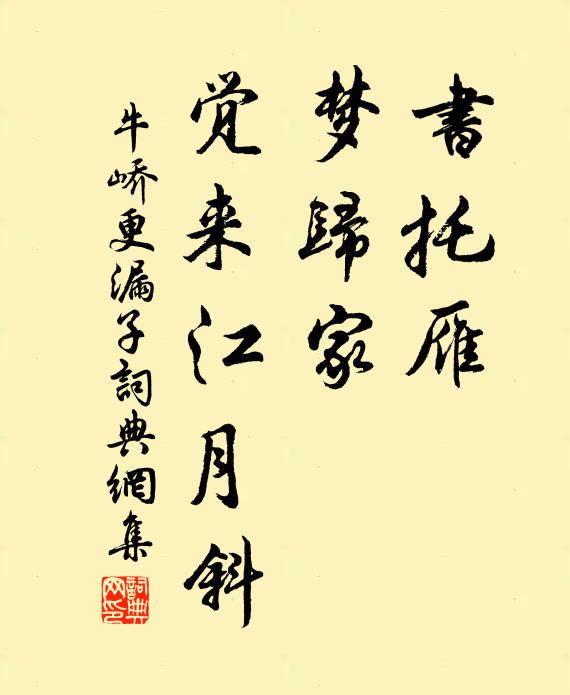 書托雁
梦歸家
觉来江月斜
牛峤更漏子詞典網集
詞典網印